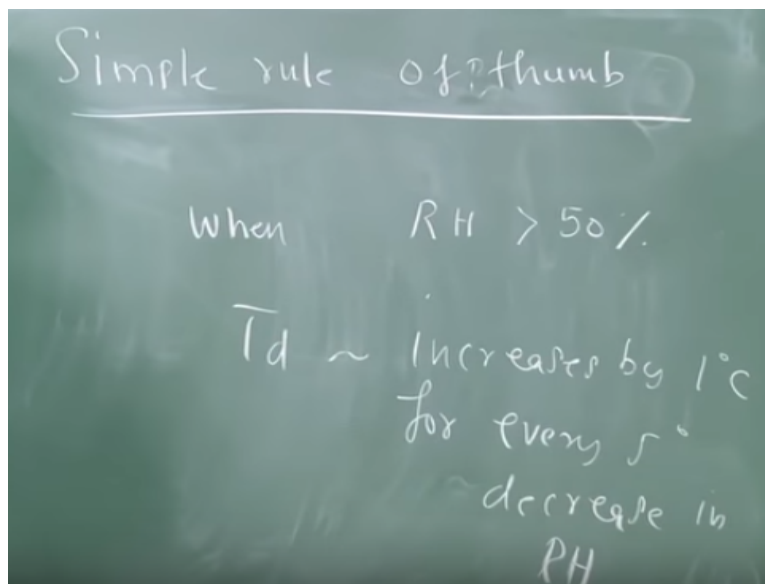 Simple rule of thumb
When RH > 50%
Td ~ increases by 1°C
for every 5°
decrease in
RH